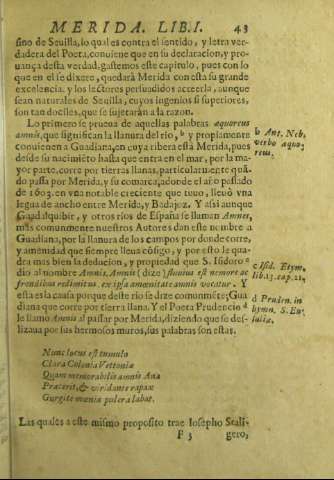 MERIDA. LIB. I. 43
sino de Seuilla, lo qual es contra el sentido, y letra ver-
dadera del Poeta, conuiene que en su declaracion, y pro-
uança desta verdad, gastemos este capitulo, pues con lo
que en el se dixere, quedarà Merida con esta su grande
excelencia. y los lectores persuadidos a creerla, aunque
sean naturales de Seuilla, cuyos ingenios si superiores,
son tan dociles, que se sujetaràn a la razon.
Lo primero se prueua de aquellas palabras aquoreus
amnis, que significan la llanura del rio, b y propiamente
conuienen a Guadiana, en cuya ribera està Merida, pues
desde su nacimiẽto hasta que entra en el mar, por la ma-
yor parte, corre por tierras llanas, particularmẽte quã-
do passa por Merida, y su comarca, adonde el año passado
de 1603. en vna notable creciente que tuuo, lleuò vna
legua de ancho entre Merida, y Badajoz. Y assi aunque
Guadalquibir, y otros rios de España se llaman Amnes,
mas comunmente nuestros Autores dan este nombre a
Guadiana, por la llanura de los campos por donde corre,
y amenidad que siempre lleua cõsigo, y por esto le qua-
dra mas bien la deducion, y propiedad que S. Isidoro c
dio al nombre Amnis. Amnis (dize) fluuius est nemore ac
frondibus redimitus. ex ipsa amœnitate amnis vocatur. Y
esta es la causa porque deste rio se dize comunmẽte; Gua
diana que corre por tierra llana. Y el Poeta Prudencio d
le llamo Amnis al passar por Merida, diziendo que se des-
lizaua por sus hermosos muros, sus palabras son estas.
b Ant. Neb.
verbo aquo
reus.
c Isid. Etym.
lib. 13. cap. 21,
d Pruden. in
hymn. S. Eu-
laliæ.
Nunc locus est tumulo
Clara Colonia Vettoniæ
Quam memorabilis amnis Ana
Præterit, & viridante rapax
Gurgite mœnia pulcra labat.
Las quales a este mismo proposito trae Iosepho Scali-
F 3 gero,